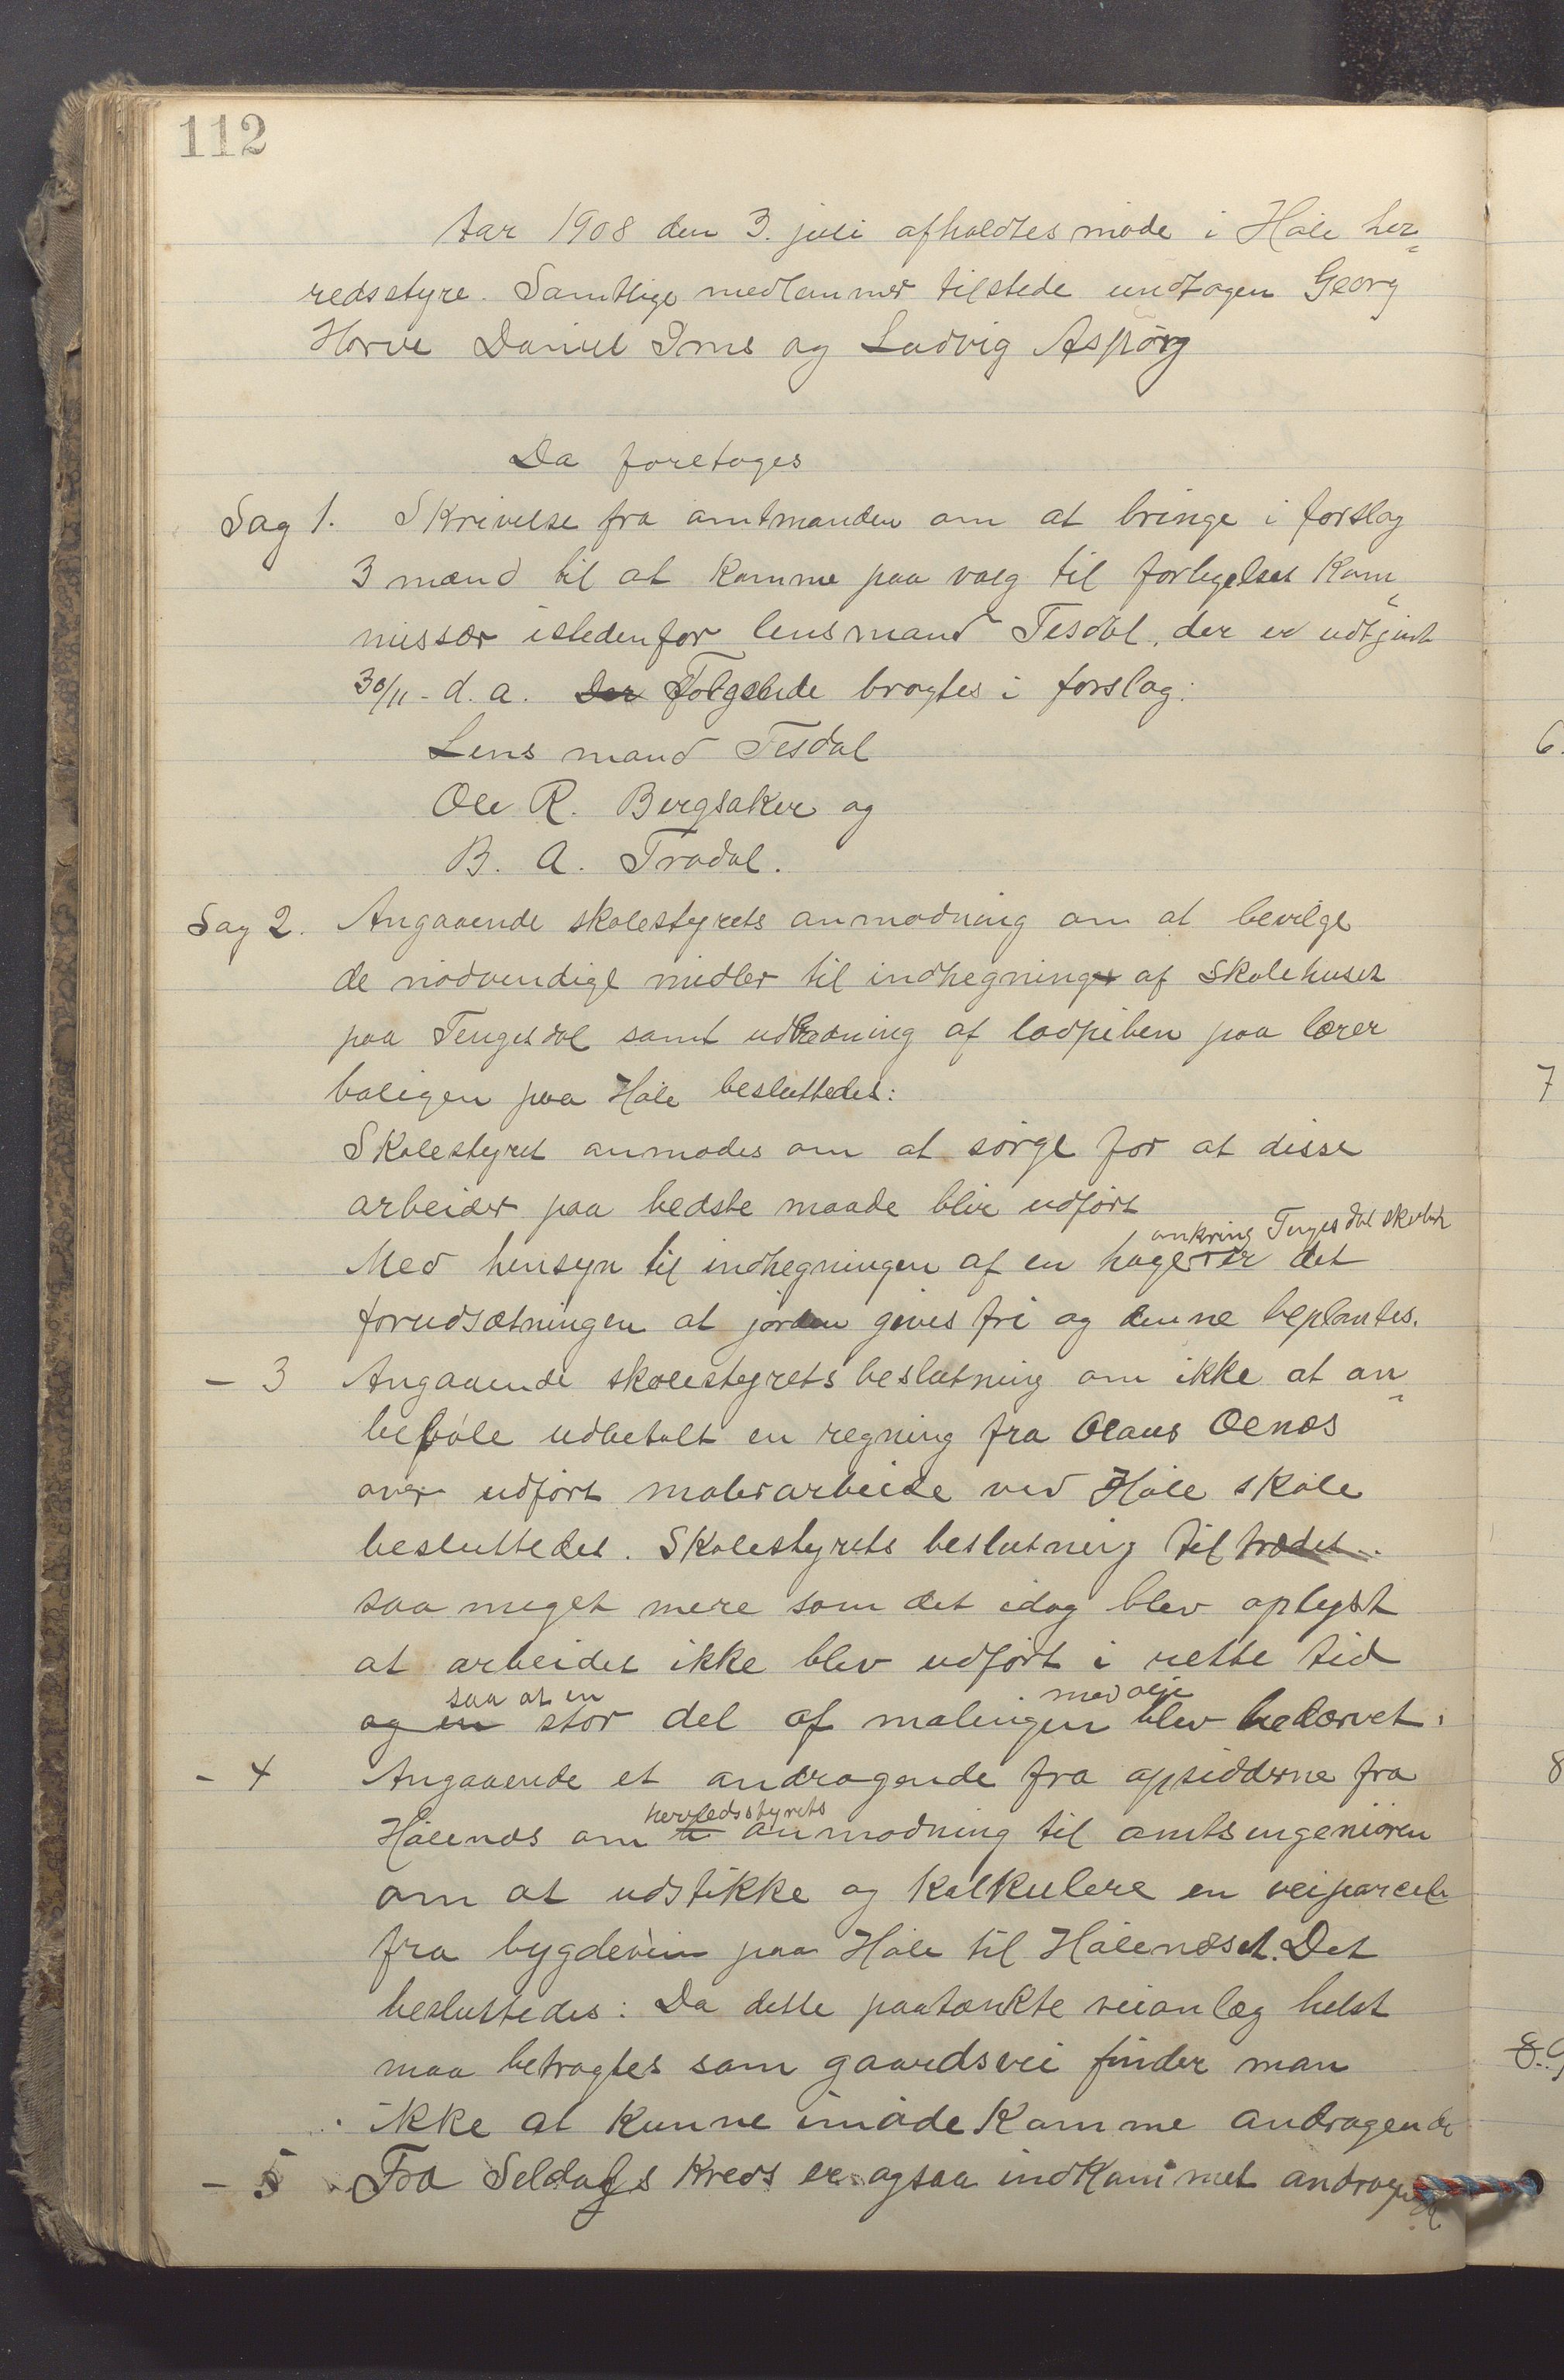 112
Aar 1908 den 3. juli afholdtes møde i Høle her-
redsstyre. Samtlige medlemmer tilstede undtagen Georg
Horve Daniel Ims og Ludvig Aspøy
Da foretoges
Sag 1. Skrivelse fra amtmanden om at bringe i forslag
3 mænd til at komme paa valg til forligelses kom-
missær istedenfor lensmand Tesdal, der er udtjent
30/11 - d. a. Der Følgende bragtes i forslag:
Lensmand Tesdal
Ole R. Bergsaker og
B. A. Trodal.
Sag 2. Angaaende skolestyrets anmodning om at bevilge
de nødvendige midler til indhegning af skolehuset
paa Tengesdal samt udbedning af ladpiben paa lærer
boligen paa Høle besluttedes:
Skolestyret anmodes om at sørge for at disse
arbeider paa bedste maade blir udført
omkring Tengesdal skolehus
Med hensyn til indhegningen af en hage er det
forudsætningen at jorden gives fri og denne beplantes.
- 3 Angaaende skolestyrets beslutning om ikke at an-
befale udbetalt en regning fra Olaus Oenæs
over udført malerarbeide ved Høle skole
besluttedes. Skolestyrets beslutning tiltrædes..
saa meget mere som det idag blev oplyst
at arbeidet ikke blev udført i rette tid
saa at en med olje
og en stor del af malingen blev bedærvet.
- 4 Angaaende et andragende fra opsidderne fra
herredsstyrets
Hølenæs om anmodning til amtsingeniøren
om at udstikke og kalkulere en veiparcel
fra bygdeveien paa Høle til Hølenæset. Det
besluttedes: Da dette paatænkte veianlæg helst
maa betragtes som gaardsvei finder man
ikke at kunne imødekomme andragende
- 5 Fra Seldals kreds er ogsaa indkommet andragende
6.
7
8
8.9